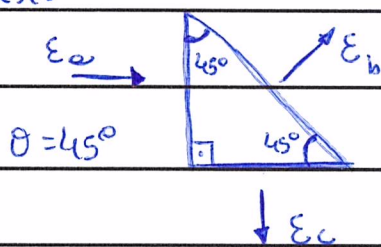 εa
45°
εb
θ = 45°
45°
εc